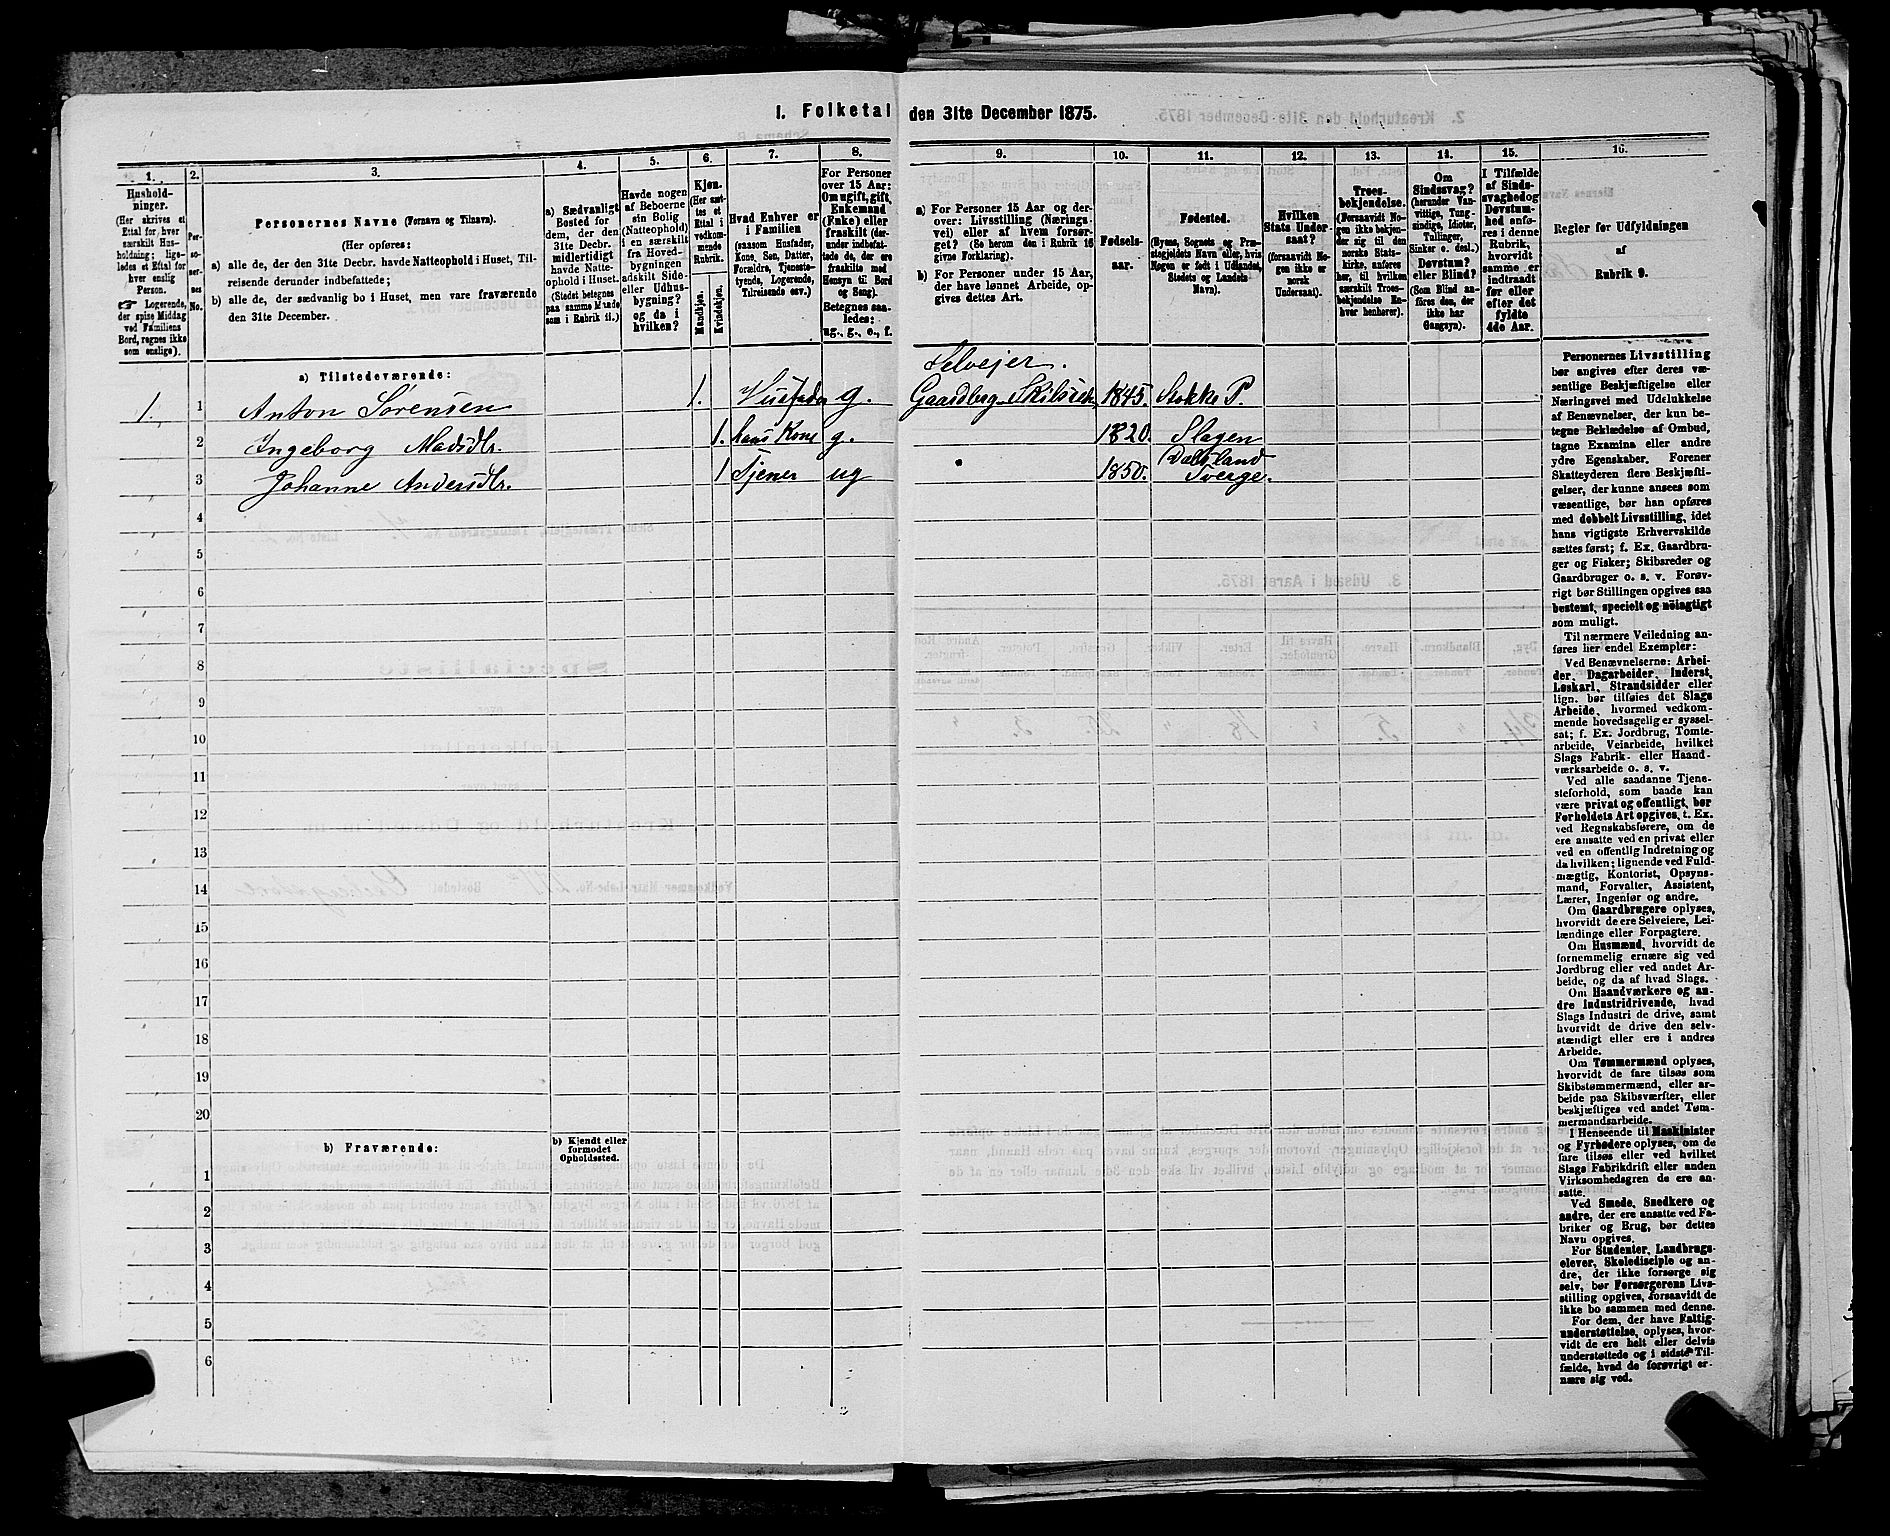 1. Folketal den 31te December 1875.
1. 2. 3. 4. 5. 6. 7. 8. 9. 10. 11. 12. 13. 14. 15. 16.
Hushold-
ninger.
(Her skrives et
Ettal for hver
særskilt Hus-
holdning; lige-
ledes et Ettal for
hver enslig
Person.
☞ Logerende,
der spise Middag
ved Familiens
Bord, regnes ikke
som enslige).
Per-
so-
ner-
nes
No.
Personernes Navne (Fornavn og Tilnavn).
(Her opføres:
a) alle de, der den 31te Decbr. havde Natteophold i Huset, Til-
reisende derunder indbefattede;
b) alle de, der sædvanlig bo i Huset, men vare fraværende
den 31te December.
a) Sædvanligt
Bosted for
dem, der den
31te Decbr.
midlertidigt
havde Natte-
ophold i Huset.
(Stedet betegnes
paa samme Maade
som i Rubrik 11.)
Havde nogen
af Beboerne
sin Bolig
(Natteophold)
i en særskilt
fra Hoved-
bygningen
adskilt Side-
eller Udhus-
bygning?
og da i
hvilken?
Kjøn.
(Her sæt-
tes et
Ettal i
vedkom-
mende
Rubrik.
Mandkjøn.
Kvindekjøn.
Hvad Enhver er
i Familien
(saasom Husfader,
Kone, Søn, Datter,
Forældre, Tjeneste-
tyende, Logerende,
Tilreisende osv.)
For Personer
over 15 Aar:
Om ugift, gift,
Enkemand
(Enke) eller
fraskilt (der-
under indbefat-
tede de, der ere
fraskilte med
Hensyn til Bord
og Seng).
Betegnes saa-
ledes:
ug., g., e., f.
a) For Personer 15 Aar og der-
over: Livsstilling (Nærings-
vei) eller af hvem forsør-
get? (Se herom den i Rubrik 16
givne Forklaring).
b) For Personer under 15 Aar,
der have lønnet Arbeide, op-
gives dettes Art.
Fødsels-
aar.
Fødested.
(Byens, Sognets og Præ-
stegjeldets Navn eller, hvis
Nogen er født i Udlandet,
Stedets og Landets
Navn).
Hvilken
Stats Under-
saat?
(forsaavidt No-
gen ikke er
norsk
Undersaat).
Troes-
bekjendelse.
(Forsaavidt No-
gen ikke bekjen-
der sig til den
norske Stats-
kirke, anføres
her, til hvilken
særskilt Troes-
bekjendelse En-
hver henhører).
Om
Sindssvag?
(herunder Van-
vittige, Tung-
sindige, Idioter,
Tullinger,
Sinker o. desl.)
Døvstum?
eller Blind?
(Som Blind an-
føres den, der
ikke har
Gangsyn).
I Tilfælde
af Sinds-
svaghed og
Døvstum-
hed anfø-
res i denne
Rubrik,
hvorvidt
samme er
indtraadt
før eller
efter det
fyldte
4de Aar.
Regler før Udfyldningen
af
Rubrik 9.
a) Tilstedeværende:
Selvejer.
1. 1 Anton Sørensen 1. Husfader g. Gaardbrg. Skibsred. 1845. Stokke P.
2 Ingeborg Madsdtr. 1. hans Kone g. 1820. Slagen
Dalsland
3 Johanne Andersdtr. 1 Tjener ug 1850. Sverge.
4
5
6
7
8
9
10
11
12
13
14
15
16
17
18
19
20
b) Fraværende:
b) Kjendt eller
formodet
Opholdssted.
1
2
3
4
5
6
Personernes Livsstilling
bør angives efter deres væ-
sentlige Beskjæftigelse eller
Næringsvei med Udelukkelse
af Benævnelser, der kun be-
tegne Beklædelse af Ombud,
tagne Examina eller andre
ydre Egenskaber. Forener
Skatteyderen flere Beskjæfti-
gelser, der kunne ansees som
væsentlige, bør han opføres
med dobbelt Livsstilling, idet
hans vigtigste Erhvervskilde
sættes først; f. Ex. Gaardbru-
ger og Fisker; Skibsreder og
Gaardbruger o. s. v. Forøv-
rigt bør Stillingen opgives saa
bestemt, specielt og nöiagtigt
som muligt.
Til nærmere Veiledning an-
føres her endel Exempler:
Ved Benævnelserne: Arbei-
der, Dagarbeider, Inderst,
Løskarl, Strandsidder eller
lign. bør tilføies det Slags
Arbeide, hvormed vedkom-
mende hovedsagelig er syssel-
sat; f. Ex. Jordbrug, Tomte-
arbeide, Veiarbeide, hvilket
Slags Fabrik- eller Haand-
værksarbeide o. s. v.
Ved alle saadanne Tjene-
steforhold, som baade kan
være privat og offentligt, bør
Forholdets Art opgives, t. Ex.
ved Regnskabsførere, om de
ere ansatte ved en privat eller
ved en offentlig Indretning og
da hvilken; lignende ved Fuld-
mægtig, Kontorist, Opsyns-
mand, Forvalter, Assistent,
Lærer, Ingeniør og andre.
Om Gaardbrugere oplyses,
hvorvidt de ere Selveiere, Lei-
lændinge eller Forpagtere.
Om Husmænd, hvorvidt de
fornemmelig ernære sig ved
Jordbrug eller ved andet Ar-
beide, og da af hvad Slags.
Om Haandværkere og an-
dre Industridrivende, hvad
Slags Industri de drive, samt
hvorvidt de drive den selv-
stændigt eller ere i andres
Arbeide.
Om Tømmermænd oplyses,
hvorvidt de fare tilsøs som
Skibstømmermænd, eller ar-
beide paa Skibsværfter, eller
beskjæftiges ved andet Tøm-
mermandsarbeide.
I Henseende til Maskinister
og Fyrbødere oplyses, om de
fare tilsøs eller ved hvilket
Slags Fabrikdrift eller anden
Virksomhedsgren de ere an-
satte.
Ved Smede, Snedkere og
andre, der ere ansatte ved Fa-
briker og Brug, bør dettes
Navn opgives.
For Studenter, Landbrugs-
elever, Skoledisciple og an-
dre, der ikke forsørge sig
selv, bør Forsørgerens Livs-
stilling opgives, forsaavidt de
ikke bo sammen med denne.
For dem, der have Fattig-
understøttelse, oplyses, hvor-
vidt de ere helt eller delvis
understøttede og i sidste Til-
fælde, hvad de forøvrigt er-
nære sig ved.